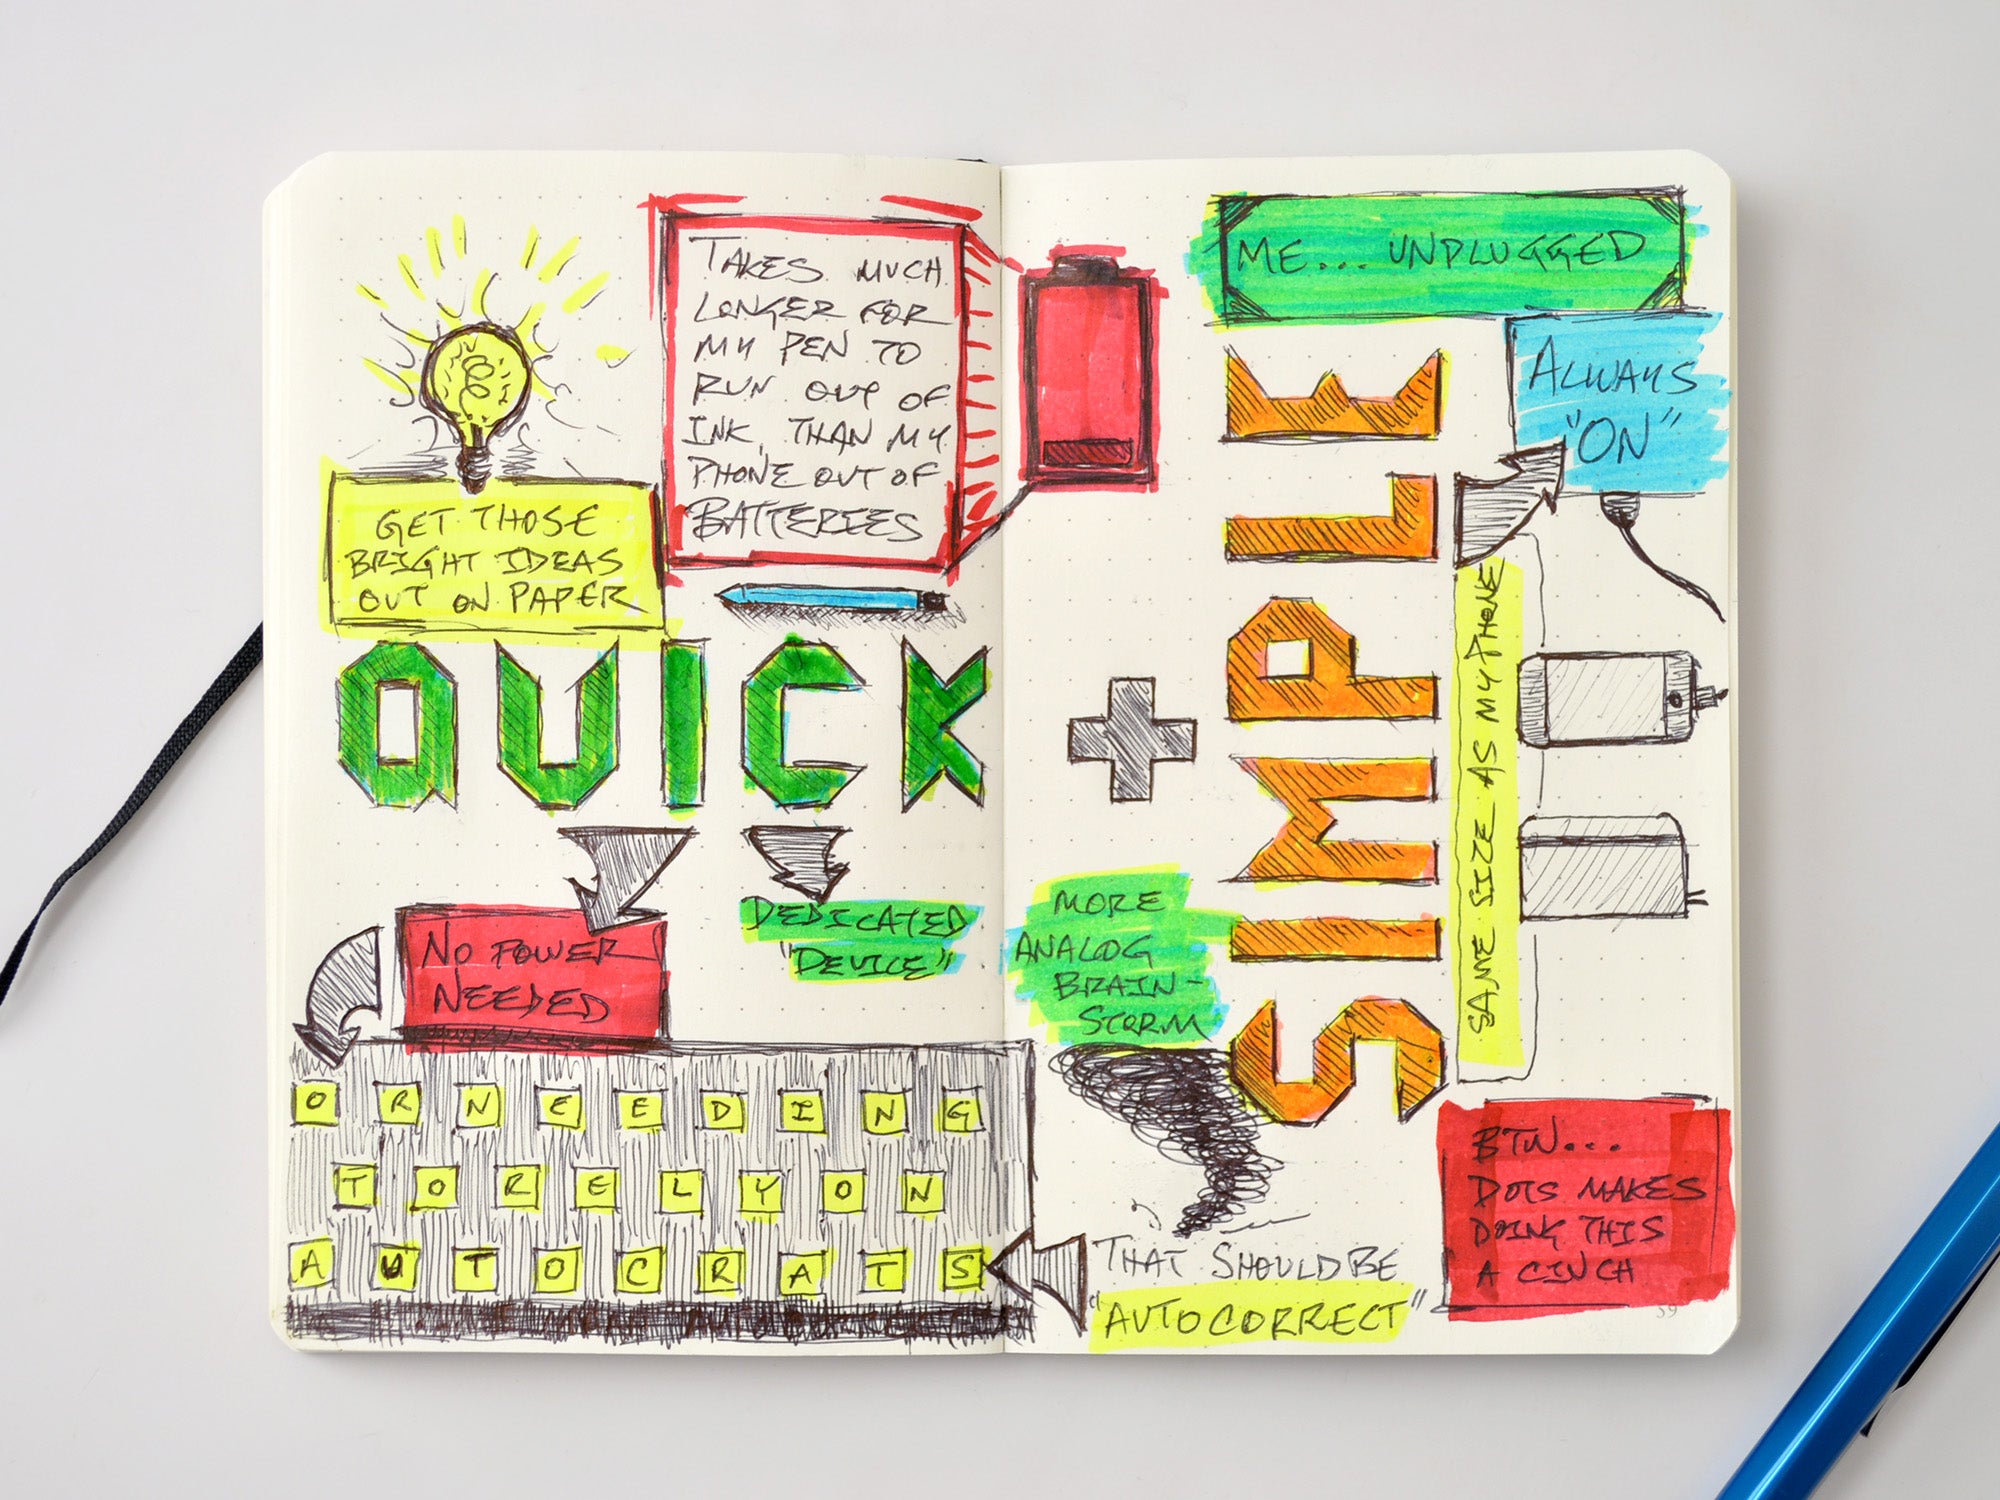 GET THOSE
BRIGHT IDEAS
OUT ON PAPER
TAKES MUCH
LONGER FOR
MY PEN TO
RUN OUT OF
INK, THAN MY
PHONE OUT OF
BATTERIES
QUICK
NO POWER
NEEDED
DEDICATED
"DEVICE"
OR NEEDING
TO RELY ON
AUTOCRATS
+
ME... UNPLUGGED
ALWAYS
"ON"
SIMPLE
SAME SIZE AS MY PHONE
MORE
ANALOG
BRAIN-
STORM
THAT SHOULD BE
"AUTOCORRECT"
BTW...
DOTS MAKES
DOING THIS
A CINCH
59